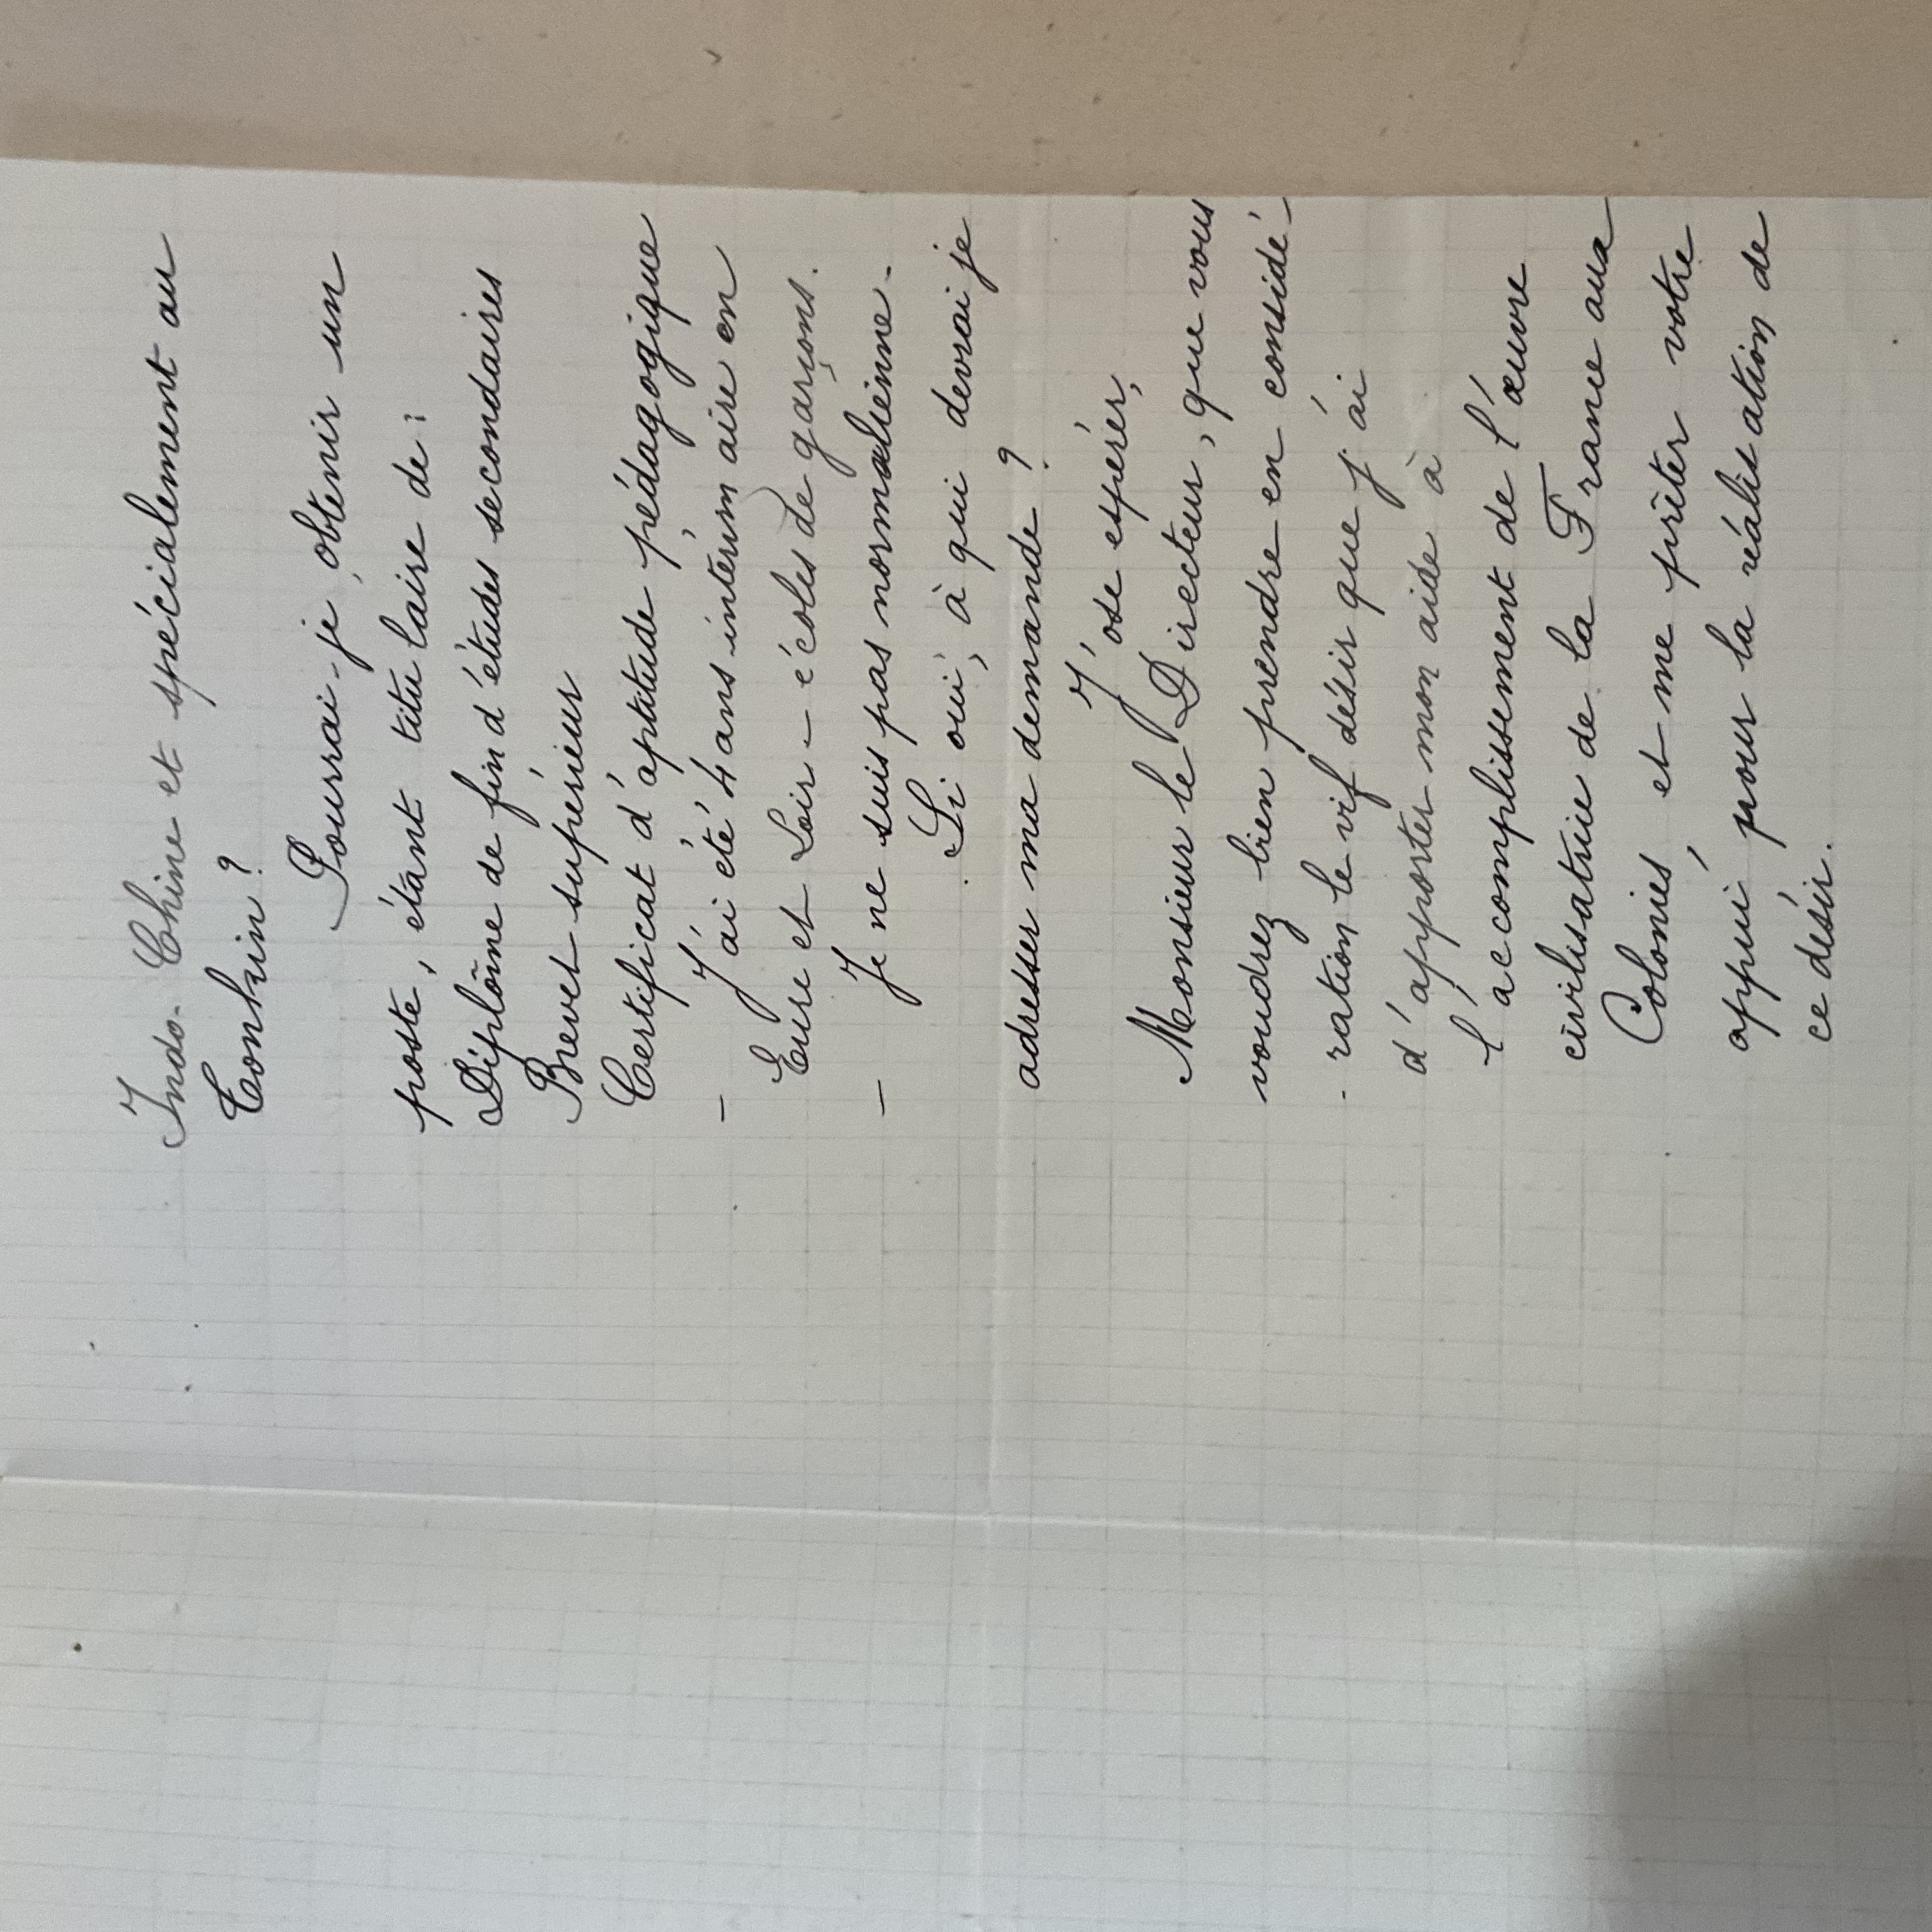 Indo-Chine et spécialement au
Tonkin ?
Pourrai-je, obtenir un
poste, étant titulaire de :
Diplôme de fin d'études secondaires
Brevet supérieur
Certificat d'aptitude pédagogique
- J'ai été 4 ans intérimaire en
Eure et Loir - écoles de garçons.
- Je ne suis pas normalienne -
Si oui, à qui devrai je
adresser ma demande ?
J'ose espérer,
Monsieur le Directeur, que vous
voudrez bien prendre en considé
- ration le vif désir que j'ai
d'apporter mon aide à
l'accomplissement de l'œuvre
civilisatrice de la France aux
Colonies, et me prêter votre
appui, pour la réalisation de
ce désir.